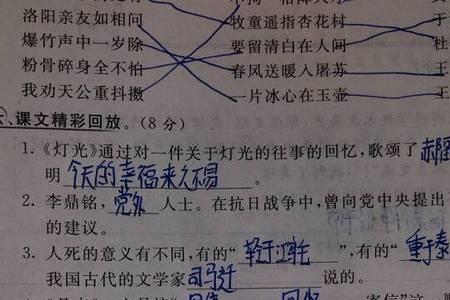 洛阳亲友如相问 牧童遥指杏花村
爆竹声中一岁除 要留清白在人间 杜
粉骨碎身全不怕 春风送暖入屠苏 王
我劝天公重抖擞 一片冰心在玉壶 王
、课文精彩回放。(8分)
1.《灯光》通过对一件关于灯光的往事的回忆,歌颂了 郝
明 今天的幸福来之不易 。
2. 李鼎铭, 党外 人士。在抗日战争中,曾向党中央提出
的建议。
3. 人死的意义有不同,有的“ 轻于鸿毛 ”,有的“ 重于泰
我国古代的文学家 司马迁 说的。